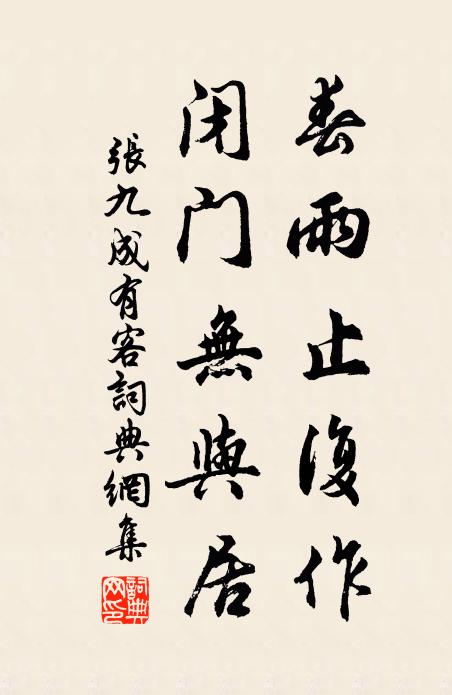 春雨止復作
闭门無與居
張九成有客詞典網集
詞典网印